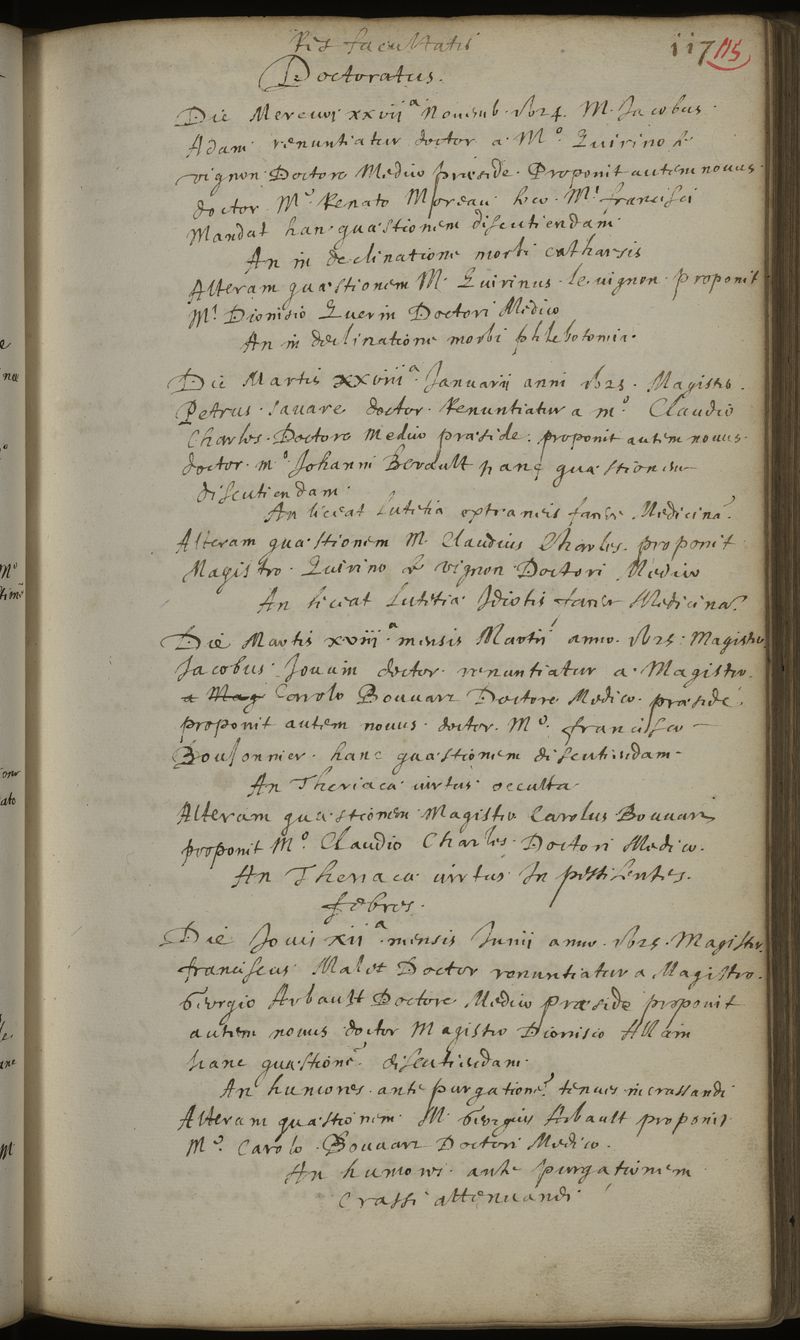 Res facultatis
117 115
Doctoratus.
Die Mercurij xxvii a Novemb. 1624. M. Jacobus
Adam renuntiatur doctor a M o Quirino le
vignon Doctore Medico præside. Proponit autem novus
doctor M o Renato Moreau loco M i francisci
Mandat hanc quæstionem discutiendam
An in declinatione morbi catharsis
Alteram quæstionem M. Quirinus le vignon proponit
M o Dionisio Guerin Doctori Medico
An in declinatione morbi phlebotomia.
Die Martis xxviii a Januarij anni 1625. Magister
Petrus Savare doctor renuntiatur a m o Claudio
Charles Doctore Medico præside. proponit autem novus
doctor m o Johanni Berault hanc quæstionem
discutiendam
An liceat Lutetiæ extraneis facere Medicinā?
Alteram quæstionem M. Claudius Charles proponit
Magistro Quirino le vignon Doctori Medico
An liceat Lutetiæ Idiotis facere Medicinā?
Die Martis xviii a mensis Martij anno 1625. Magister
Jacobus Jouvin doctor renuntiatur a Magistro
a Mag Carolo Bouvart Doctore Medico præside
proponit autem novus doctor M o francisco
Boujonnier hanc quæstionem discutiendam
An Theriacæ virtus occulta
Alteram quæstionem Magister Carolus Bouvart
proponit M o Claudio Charles Doctori Medico.
An Theriacæ virtus In pestilentes
febres.
Die Jovis xii a mensis Junij anno 1625. Magister
franciscus Malet Doctor renuntiatur a Magistro
Georgio Arbault Doctore Medico præside proponit
autem novus doctor Magistro Dionisio Allain
hanc quæstionē discutiendam
An humores ante purgationē tenues incrassandi
Alteram quæstionem M. Georgius Arbault proponit
M o Carolo Bouvart Doctori Medico.
An humores ante purgationem
Crassi attenuandi